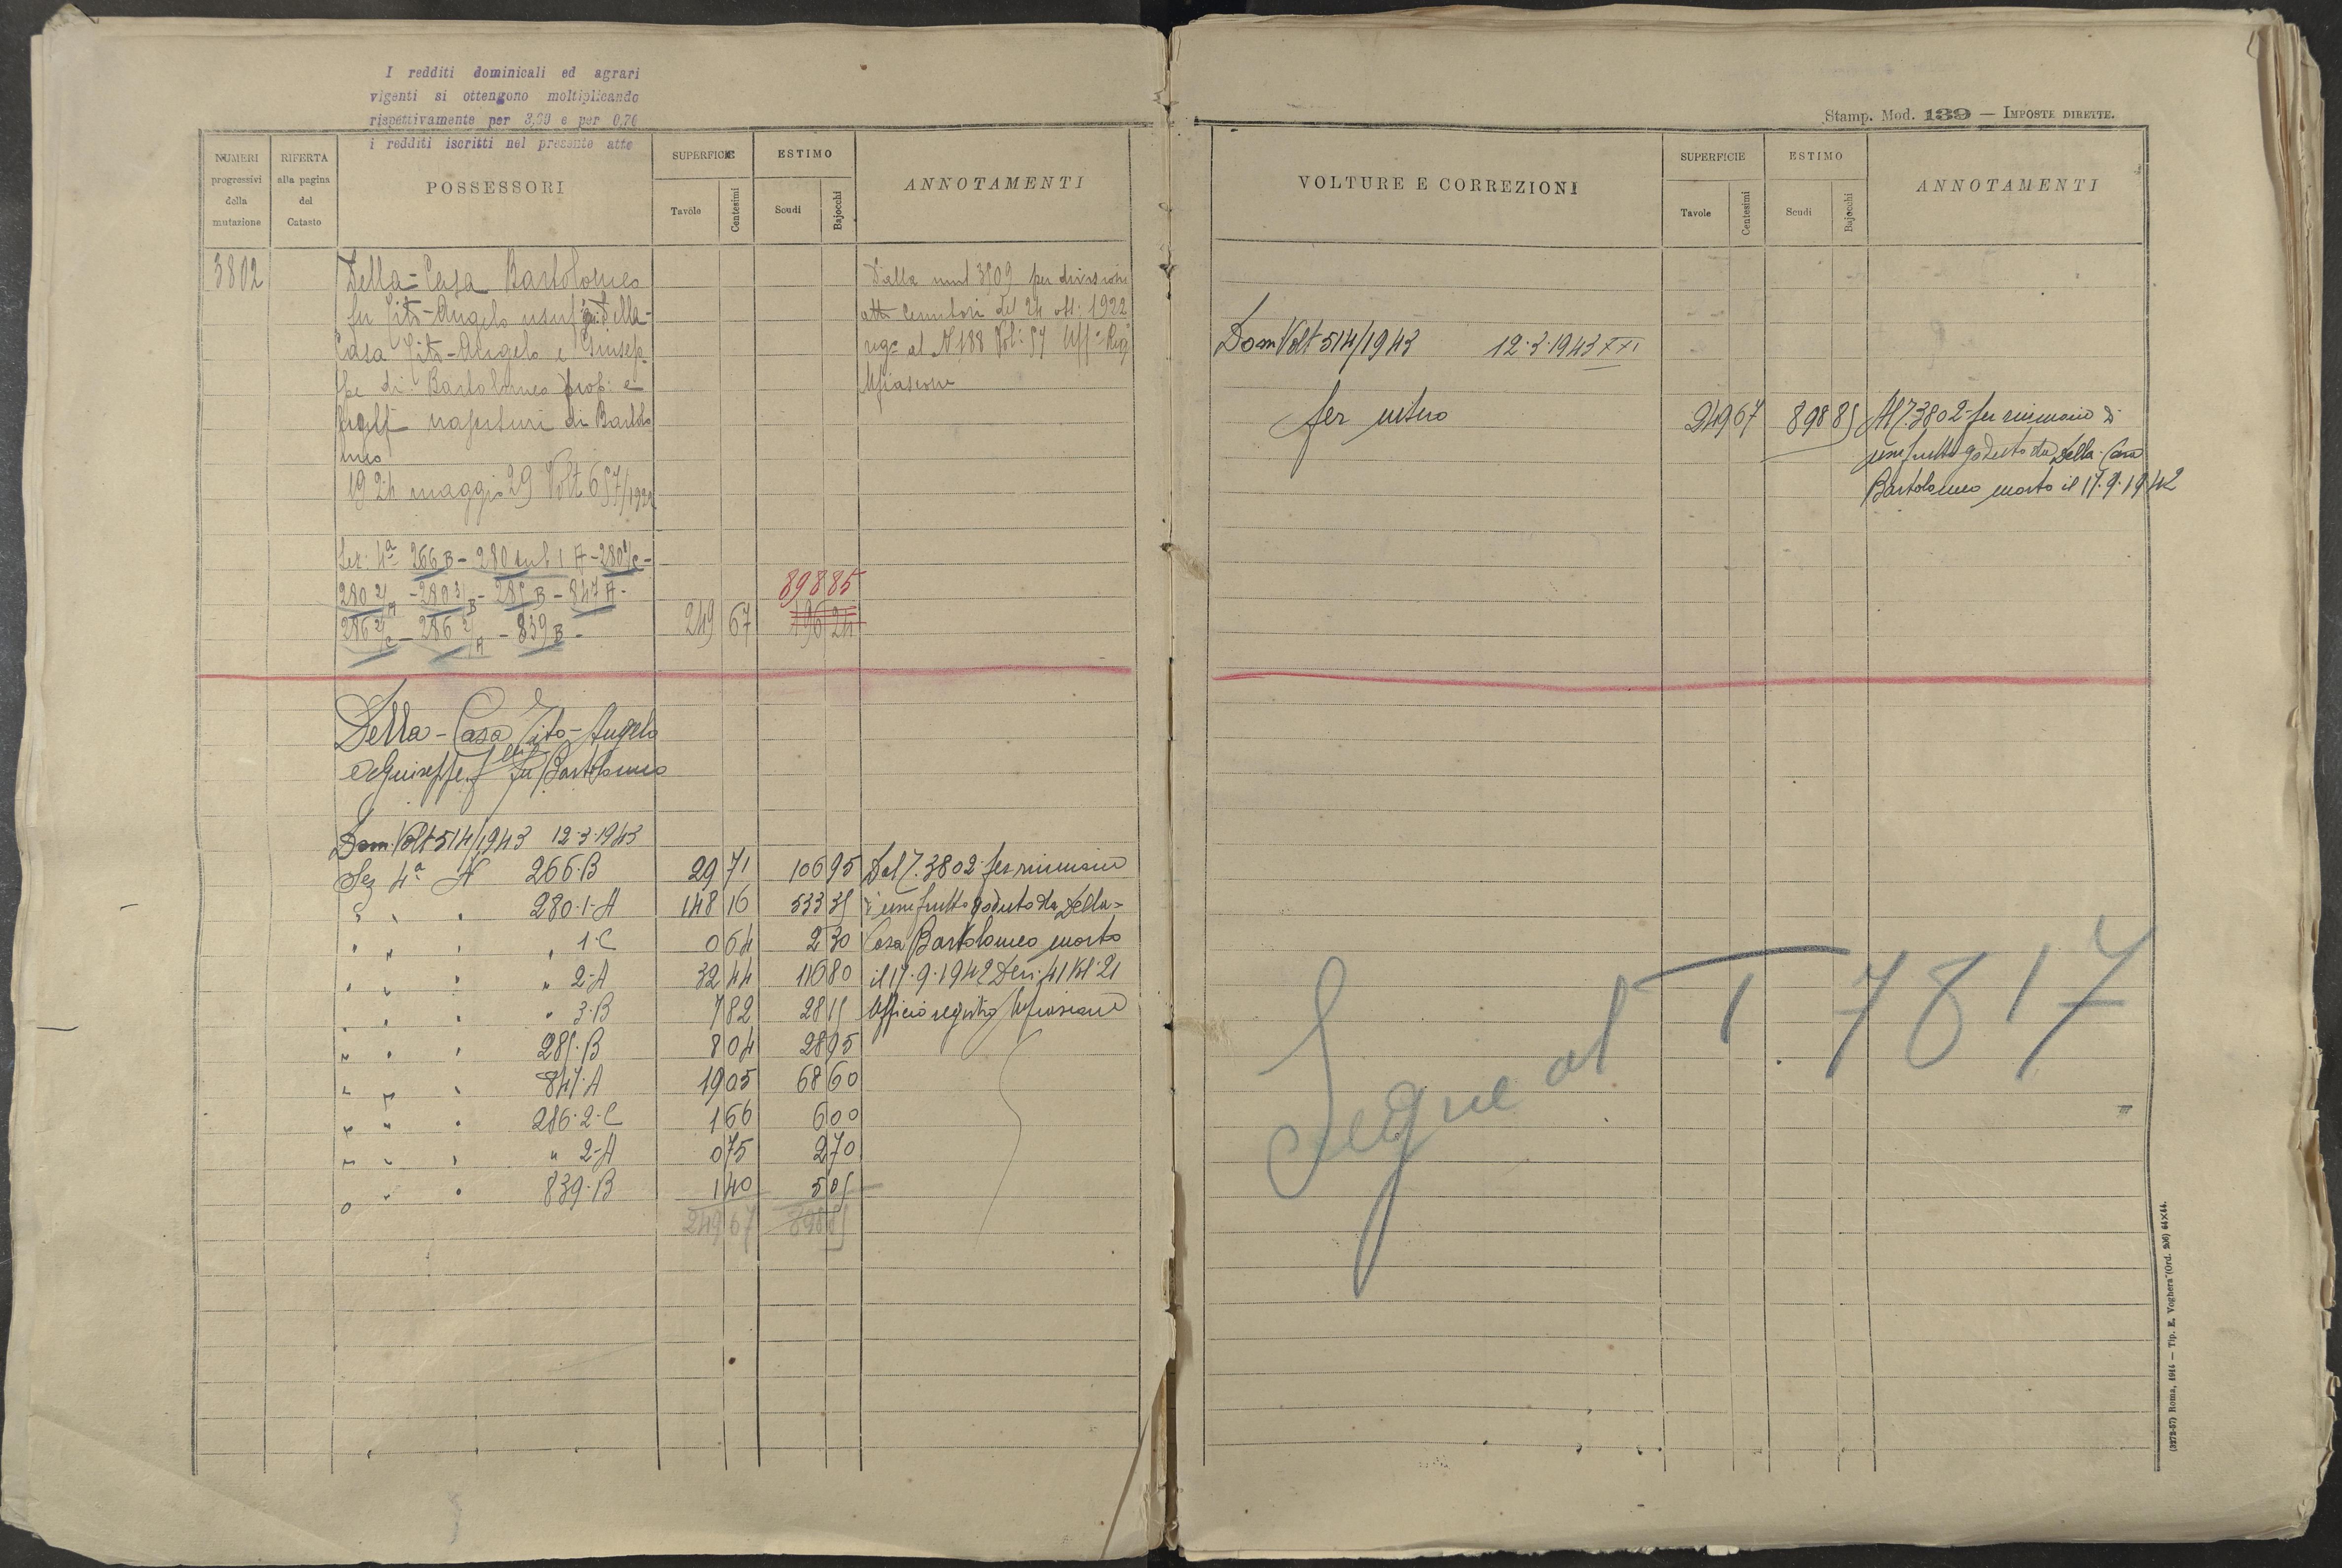 I redditi dominicali ed agrari
vigenti si ottengono moltiplicando
rispettivamente per e per
i redditi iscritti nel presente atto
NUMERI progressivi della mutazione
RIFERTA alla pagina del Catasto
POSSESSORI
SUPERFICIE
Tavole Centesimi
ESTIMO
Scudi Bajocchi
ANNOTAMENTI
3802
Della-Casa Bartolomeo
fu Tito-Angelo usuf Della-
Casa Tito-Angelo e Giusep
pe di Bartolomeo prop: e
nascituri di Bartolo
meo
1924 maggio 29 Volt 657/1924
Dalla 3809 per divisione
atto del 24 ott: 1922
reg al N 188 Vol: 57 Uff: Reg
Sez: 4ª 266B - 280 sub 1 A - 280 1/C -
280 2/A - 280 3/B - 285 B - 847 A -
286 2/C - 286 2/A - 839 B -
249 67
89885
196 24
Della-Casa Tito-Angelo
e Giuseppe flli fu Bartolomeo
Dom Volt 514/1943 12-3-1943
Sez 4ª N 266.B 29 71 106 95 Dal 3802 per riunione
" " " 280-1-A 148 16 533 35 d'usufrutto goduto da Della-
" " " " 1-C 0 64 2 30 Casa Bartolomeo morto
" " " " 2-A 32 44 116 80 il 17.9.1942 Den: 41 Vol: 21
" " " " 3-B 7 82 28 15 Ufficio registro
" " " 285-B 8 04 28 95
" " " 847-A 19 05 68 60
" " " 286-2-C 1 66 6 00
" " " " 2-A 0 75 2 70
" " " 839-B 1 40 5 05
249 67 898 85
Stamp. Mod. 139 — IMPOSTE DIRETTE.
VOLTURE E CORREZIONI
SUPERFICIE
Tavole Centesimi
ESTIMO
Scudi Bajocchi
ANNOTAMENTI
Dom Volt 514/1943 12-3-1943 XXI
per intero 249 67 898 85 Al 3802 per riunione di
usufrutto goduto da Della-Casa
Bartolomeo morto il 17.9.1942
Segue al T. 7817
(3272-57) Roma, 1914 — Tip. E. Voghera (Ord. 206) 64×44.